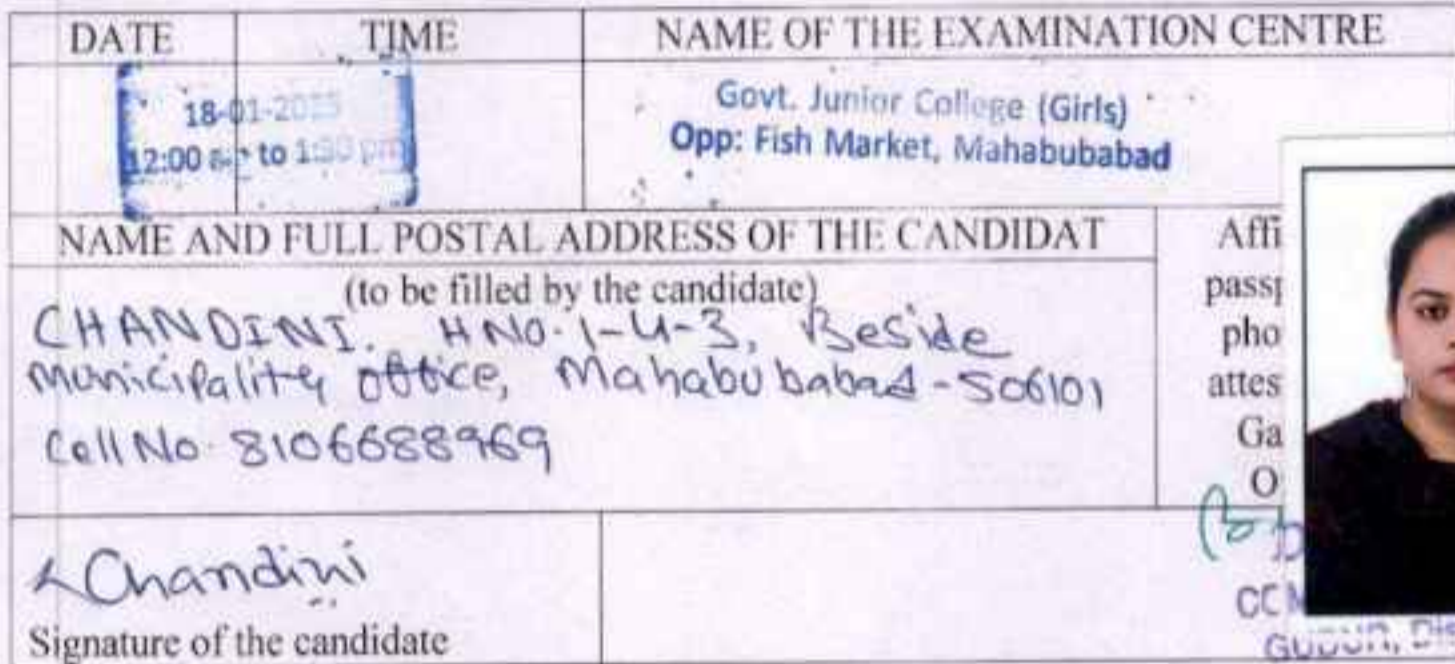 DATE TIME NAME OF THE EXAMINATION CENTRE
18-01-2025
12:00 to 1:30 pm
Govt. Junior College (Girls)
Opp: Fish Market, Mahabubabad
NAME AND FULL POSTAL ADDRESS OF THE CANDIDAT
(to be filled by the candidate)
CHANDINI. H NO. 1-4-3, Beside
Municipality office, Mahabubabad - 506101
Cell No. 8106688969
Affi
passp
pho
attes
Ga
O
Chandini
Signature of the candidate